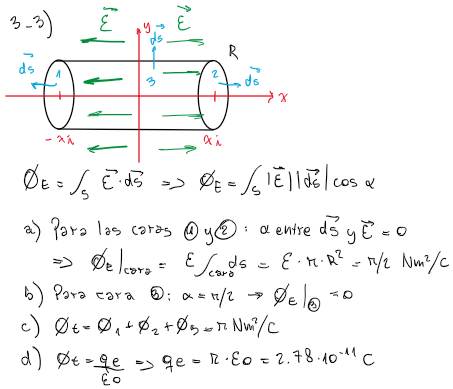 3-3)
E⃗ E⃗
y
ds⃗
R
ds⃗ 1 3 2 ds⃗
x
-xi xi
∅E = ∫S E⃗·ds⃗ => ∅E = ∫S |E⃗||ds⃗| cos α
a) Para las caras ① y ②: α entre ds⃗ y E⃗ = 0
=> ∅E|cara = E ∫cara ds = E·π·R² = π/2 Nm²/C
b) Para cara ③: α = π/2 → ∅E|③ = 0
c) ∅t = ∅1 + ∅2 + ∅3 = π Nm²/C
d) ∅t = qe/εo => qe = π·εo = 2.78·10⁻¹¹ C